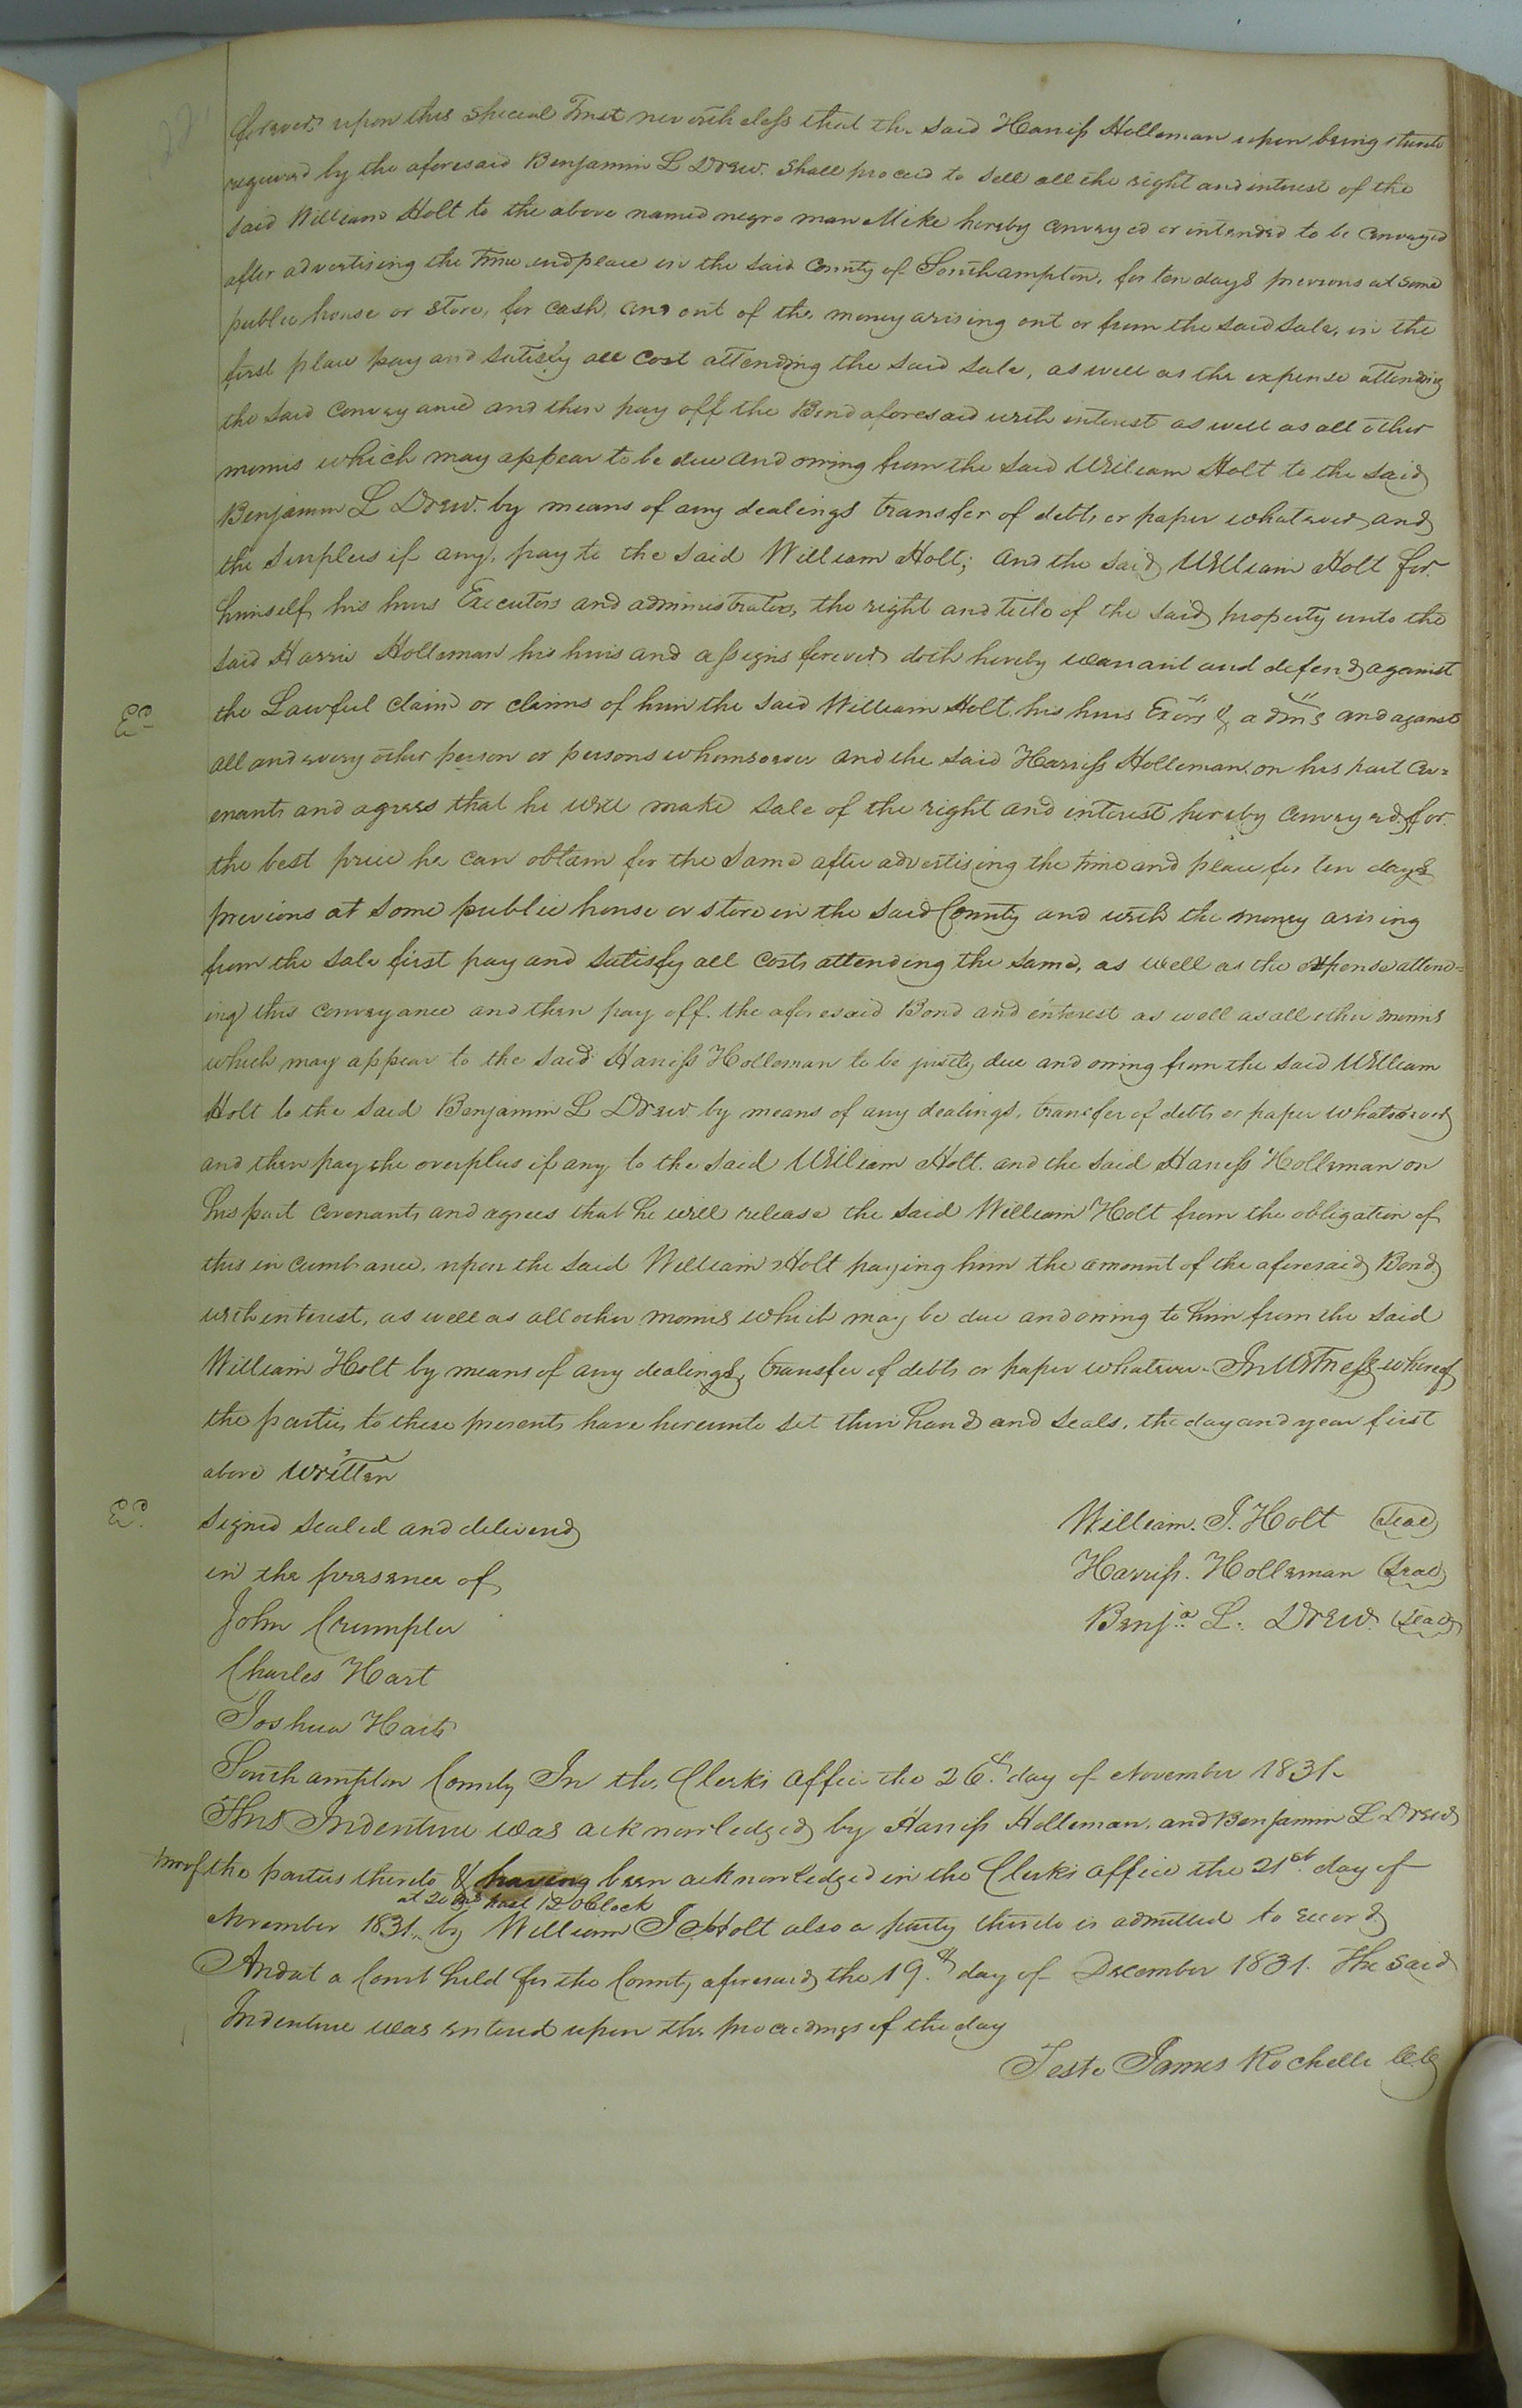 forever, upon this special Trust nevertheless that the said Harriss Holleman upon being thereto
required by the aforesaid Benjamin L Drew. shall proceed to sell all the right and interest of the
said William Holt to the above named negro man Mike hereby conveyed or intended to be conveyed
after advertising the time and place in the said County of Southampton, for ten days previous at some
public house or store, for cash, and out of the money arising out or from the said sale, in the
first place pay and satisfy all cost attending the said sale, as well as the expense attending
the said conveyance and then pay off the Bond aforesaid with interest as well as all other
monies which may appear to be due and owing from the said William Holt to the said
Benjamin L Drew. by means of any dealings transfer of debts or paper whatever and
the surplus if any, pay to the said William Holt; and the said William Holt for
himself his heirs Executors and administrators, the right and title of the said property unto the
said Harris Holleman his heirs and assigns forever doth hereby warrant and defend against
the Lawful claim or claims of him the said William Holt, his heirs Exōrs & adm̄s and against
all and every other person or persons whomsoever and the said Harriss Holleman. on his part Cov=
enants and agrees that he will make sale of the right and interest hereby conveyed, for
the best price he can obtain for the same after advertising the time and place for ten days
previous at some public house or store in the said County and with the money arising
from the sale first pay and satisfy all costs attending the same, as well as the expense attend=
ing this conveyance and then pay off. the aforesaid Bond and interest as well as all other monies
which may appear to the said Harriss Holleman to be justly due and owing from the said William
Holt to the said Benjamin L Drew by means of any dealings, transfer of debts or paper whatsoever
and then pay the overplus if any to the said William Holt. and the said Harriss Holleman on
his part Covenants and agrees that he will release the said William Holt from the obligation of
this incumbrance, upon the said William Holt paying him the amount of the aforesaid Bond
with interest, as well as all other monies which may be due and owing to him from the said
William Holt by means of any dealings, transfer of debts or paper whatever. In Witness whereof
the parties to these presents have hereunto set their hands and seals, the day and year first
above written
Signed sealed and delivered
in the presence of
John Crumpler
Charles Hart
Joshua Harts
William. J. Holt (seal)
Harriss. Holleman (seal)
Benja. L. Drew. (seal)
Southampton County In the Clerks office the 26th day of November 1831.
This Indenture was acknowledged by Harriss Holleman, and Benjamin L Drew
two of the parties thereto & having been acknowledged in the Clerks office the 21st day of
at 20 past 12 OClock
November 1831. by William J Holt also a party thereto is admitted to record
And at a Court held for the County aforesaid the 19th day of December 1831. The said
Indenture was entered upon the proceedings of the day
Teste James Rochelle CC